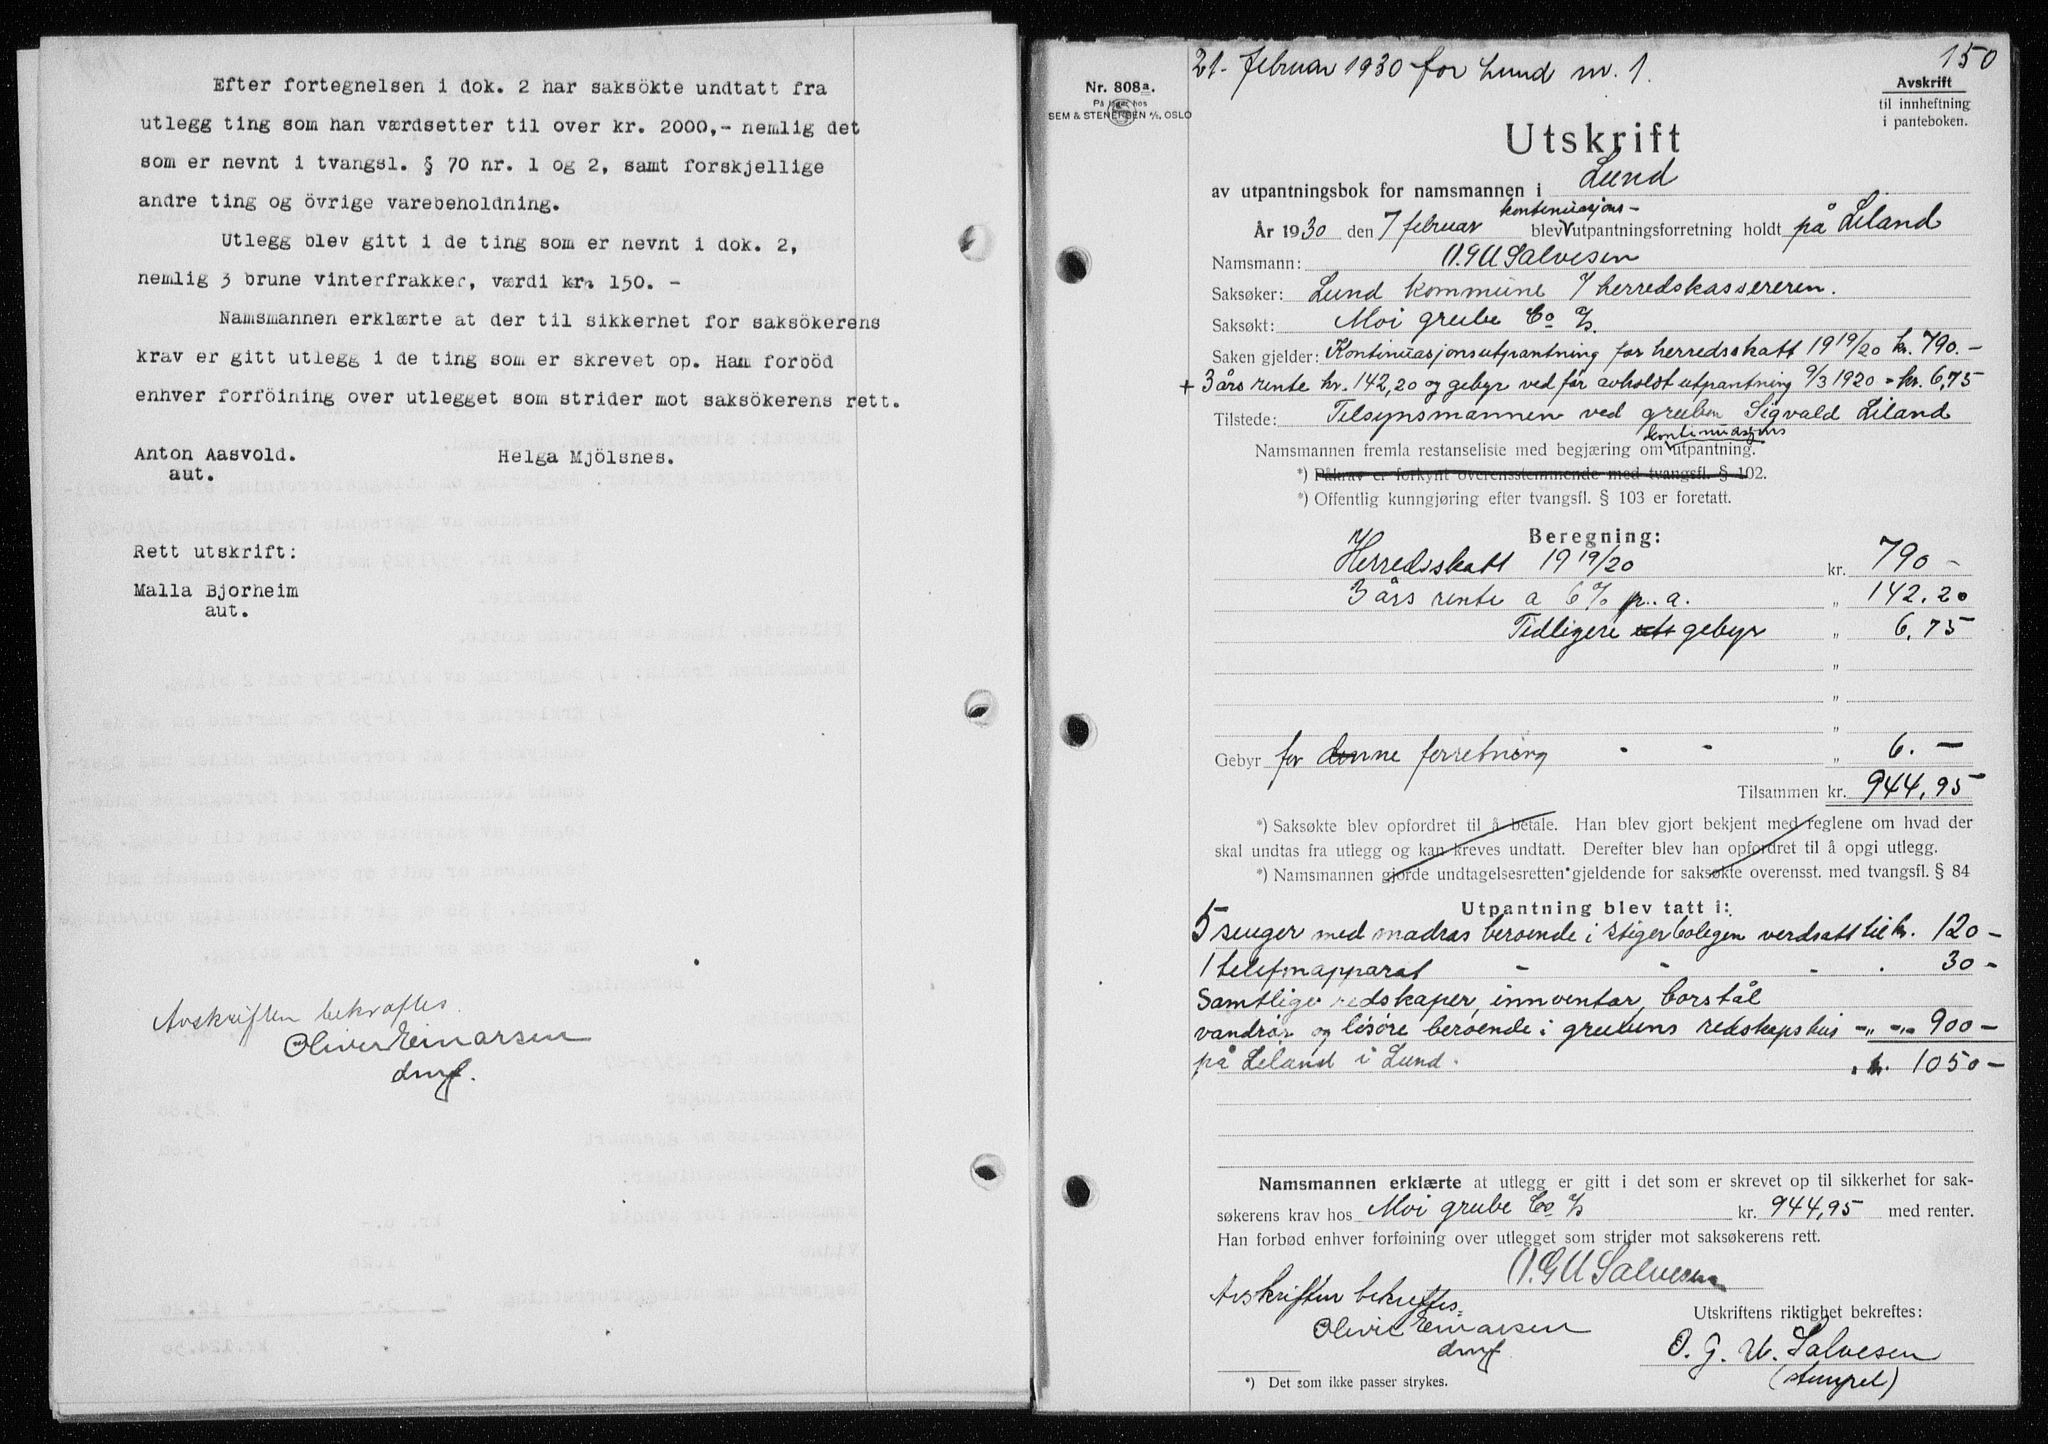 Efter fortegnelsen i dok. 2 har saksökte undtatt fra
utlegg ting som han værdsetter til over kr. 2000,- nemlig det
som er nevnt i tvangsl. § 70 nr. 1 og 2, samt forskjellige
andre ting og övrige varebeholdning.
Utlegg blev gitt i de ting som er nevnt i dok. 2,
nemlig 3 brune vinterfrakker, værdi kr. 150. -
Namsmannen erklærte at der til sikkerhet for saksökerens
krav er gitt utlegg i de ting som er skrevet op. Han forböd
enhver forföining over utlegget som strider mot saksökerens rett.
Anton Aasvold. Helga Mjölsnes.
aut.
Rett utskrift:
Malla Bjorheim
aut.
Avskriften bekræftes
Oliver Einarsen
dmf.
21. februar 1930 for Lund nr. 1. 150
Nr. 808a.
På lager hos
SEM & STENERSEN A/S, OSLO
Avskrift
til innheftning
i panteboken.
Utskrift
av utpantningsbok for namsmannen i Lund
kontinuasjons-
År 1930 den 7 februar blev utpantningsforretning holdt på Leland
Namsmann: O.G.U Salvesen
Saksøker: Lund kommune v/ herredskassereren.
Saksøkt: Moi grube Co A/S.
Saken gjelder: Kontinuasjonsutpantning for herredsskatt 1919/20 kr. 790.-
+ 3 års rente kr. 142,20 og gebyr ved før avholdt utpantning 9/3 1920 = kr. 6,75
Tilstede: Tilsynsmannen ved gruben Sigvald Leland
kontinuasjons
Namsmannen fremla restanseliste med begjæring om utpantning.
*) Påkrav er forkynt overensstemmende med tvangsfl. § 102.
*) Offentlig kunngjøring efter tvangsfl. § 103 er foretatt.
Beregning:
Herredsskatt 1919/20 kr. 790 -
3 års rente a 6 % p. a. „ 142.20
Tidligere gebyr „ 6,75
„
„
„
Gebyr for denne forretning „ 6. -
Tilsammen kr. 944,95
*) Saksøkte blev opfordret til å betale. Han blev gjort bekjent med reglene om hvad der
skal undtas fra utlegg og kan kreves undtatt. Derefter blev han opfordret til å opgi utlegg.
*) Namsmannen gjorde undtagelsesretten gjeldende for saksøkte overensst. med tvangsfl. § 84
Utpantning blev tatt i:
5 senger med madras beroende i stigerboligen verdsatt til kr. 120 -
1 telefonapparat - - - . 30 -
Samtlige redskaper, innventar, borstål
vandrør og løsøre beroende i grubens redskapshus - „ - „ - 900 -
på Leland i Lund. kr. 1050 -
Namsmannen erklærte at utlegg er gitt i det som er skrevet op til sikkerhet for sak-
søkerens krav hos Moi grube Co A/S kr. 944,95 med renter.
Han forbød enhver forføining over utlegget som strider mot saksøkerens rett.
O.G.U Salvesen
Avskriften bekreftes
Oliver Einarsen
dmf.
Utskriftens riktighet bekreftes:
O. G. U. Salvesen
(stempel)
*) Det som ikke passer strykes.